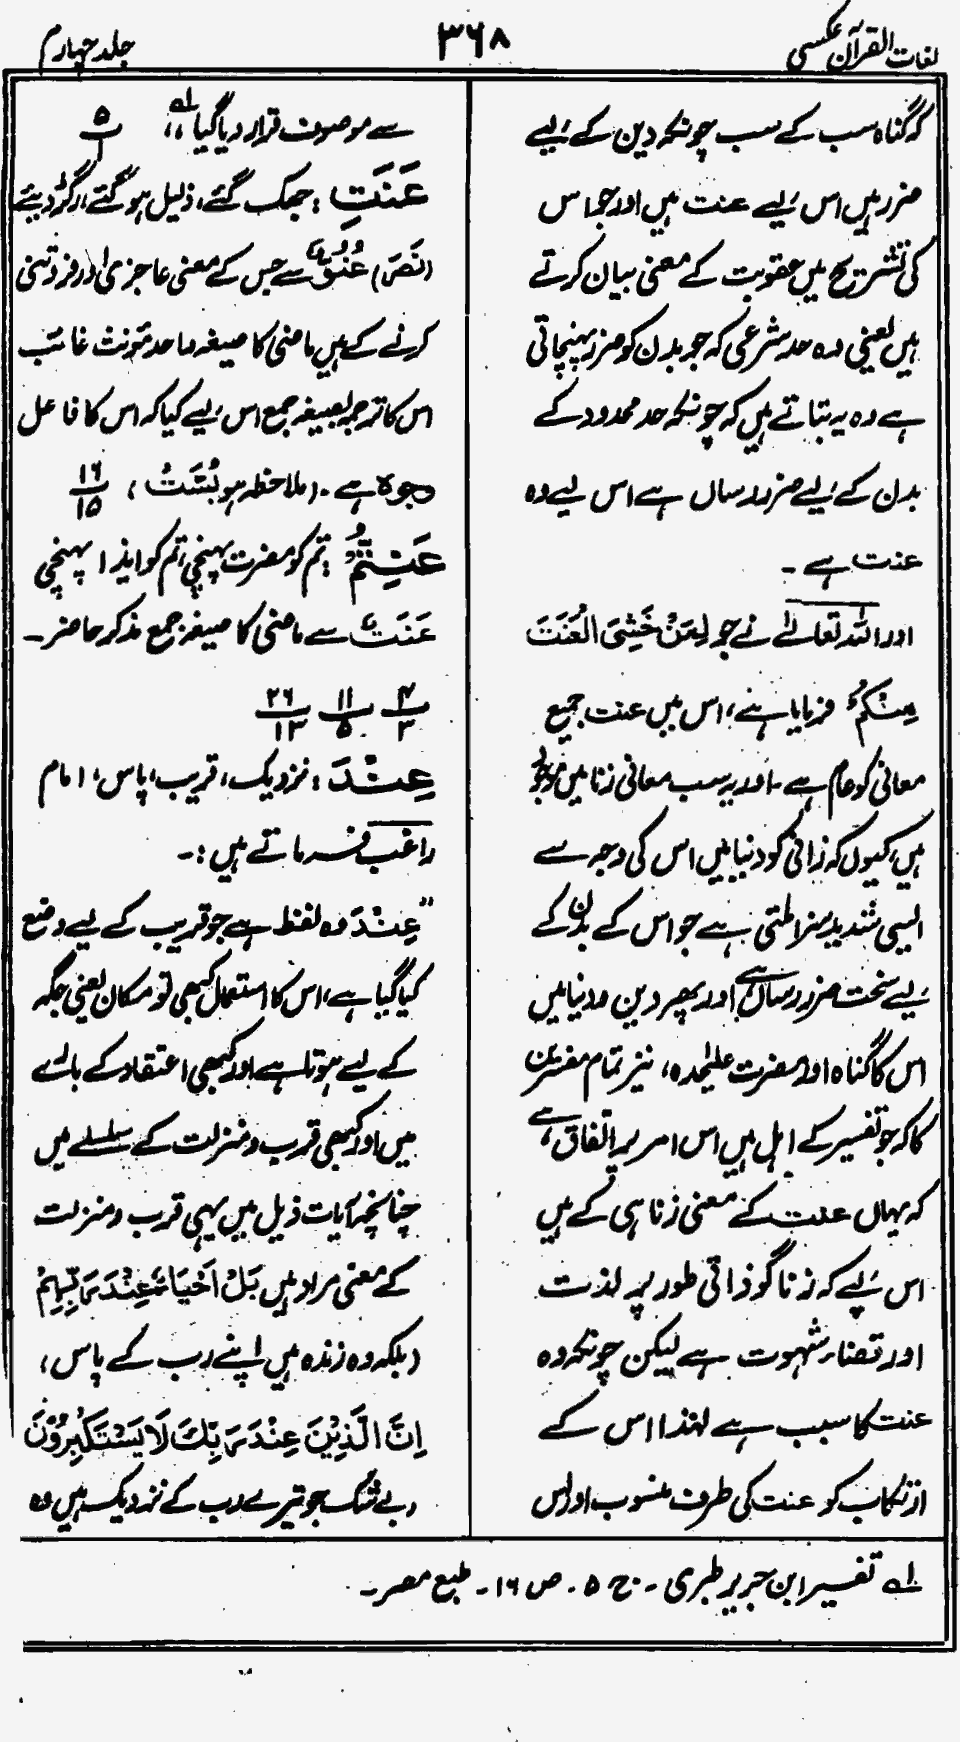 لغات القرآن عکسی
۳۶۸
جلد چہارم
کہ گناہ سب کے سب چونکہ دین کے لیے
ضرر ہیں اس لیے عنت ہیں اور جصاص
کی تشریح میں عقوبت کے معنی بیان کرتے
ہیں یعنی وہ حد شرعی کہ جو بدن کو ضرر پہنچاتی
ہے وہ یہ بتاتے ہیں کہ چونکہ حد محدود کے
بدن کے لیے ضرر رساں ہے اس لیے وہ
عنت ہے ۔
اور اللہ تعالےٰ نے جو لِمَنْ خَشِیَ الْعَنَتَ
مِنْکُمْ فرمایا ہے، اس میں عنت جمیع
معانی کو عام ہے۔ اور یہ سب معانی زنا میں موجود
ہیں، کیوں کہ زانی کو دنیا میں اس کی وجہ سے
ایسی شدید سزا ملتی ہے جو اس کے بدن کے
لیے سخت ضرر رساں ہے اور پھر دین و دنیا میں
اس کا گناہ اور مضرت علیٰحدہ، نیز تمام مفسرین
کا کہ جو تفسیر کے اہل ہیں اس امر پر اتفاق ہے،
کہ یہاں عنت کے معنی زنا ہی کے ہیں
اس لیے کہ زنا گو ذاتی طور پر لذت
اور قضاء شہوت ہے لیکن چونکہ وہ
عنت کا سبب ہے لہٰذا اس کے
ارتکاب کو عنت کی طرف منسوب اور اس
سے موصوف قرار دیا گیا،، لہ ۵/۱
عَنَتِ : جھک گئے، ذلیل ہو گئے، رگڑ دیئے
(نَصَرَ) عُنُوٌّ سے جس کے معنی عاجزی اور فروتنی
کرنے کے ہیں ماضی کا صیغہ واحد مؤنث غائب
اس کا ترجمہ بصیغہ جمع اس لیے کیا کہ اس کا فاعل
وجوہ ہے۔ (ملاحظہ ہو بُسَّتْ) ۱۶/۱۵
عَنِتُّمْ : تم کو مضرت پہنچی، تم کو ایذا پہنچی
عَنَتٌ سے ماضی کا صیغہ جمع مذکر حاضر۔
۴/۳ ۱۱/۵ ۲۶/۱۳
عِنْدَ : نزدیک، قریب، پاس، امام
راغب فرماتے ہیں :۔
”عِنْدَ وہ لفظ ہے جو قریب کے لیے وضع
کیا گیا ہے، اس کا استعمال کبھی تو مکان یعنی جگہ
کے لیے ہوتا ہے اور کبھی اعتقاد کے بارے
میں اور کبھی قرب و منزلت کے سلسلے میں
چنانچہ آیات ذیل میں یہی قرب و منزلت
کے معنی مراد ہیں بَلْ اَحْیَاءٌ عِنْدَ رَبِّہِمْ
(بلکہ وہ زندہ ہیں اپنے رب کے پاس)
اِنَّ الَّذِیْنَ عِنْدَ رَبِّکَ لَا یَسْتَکْبِرُوْنَ
(بے شک جو تیرے رب کے نزدیک ہیں وہ
لہ تفسیر ابن جریر طبری ۔ ج ۵ ۔ ص ۱۶ ۔ طبع مصر۔